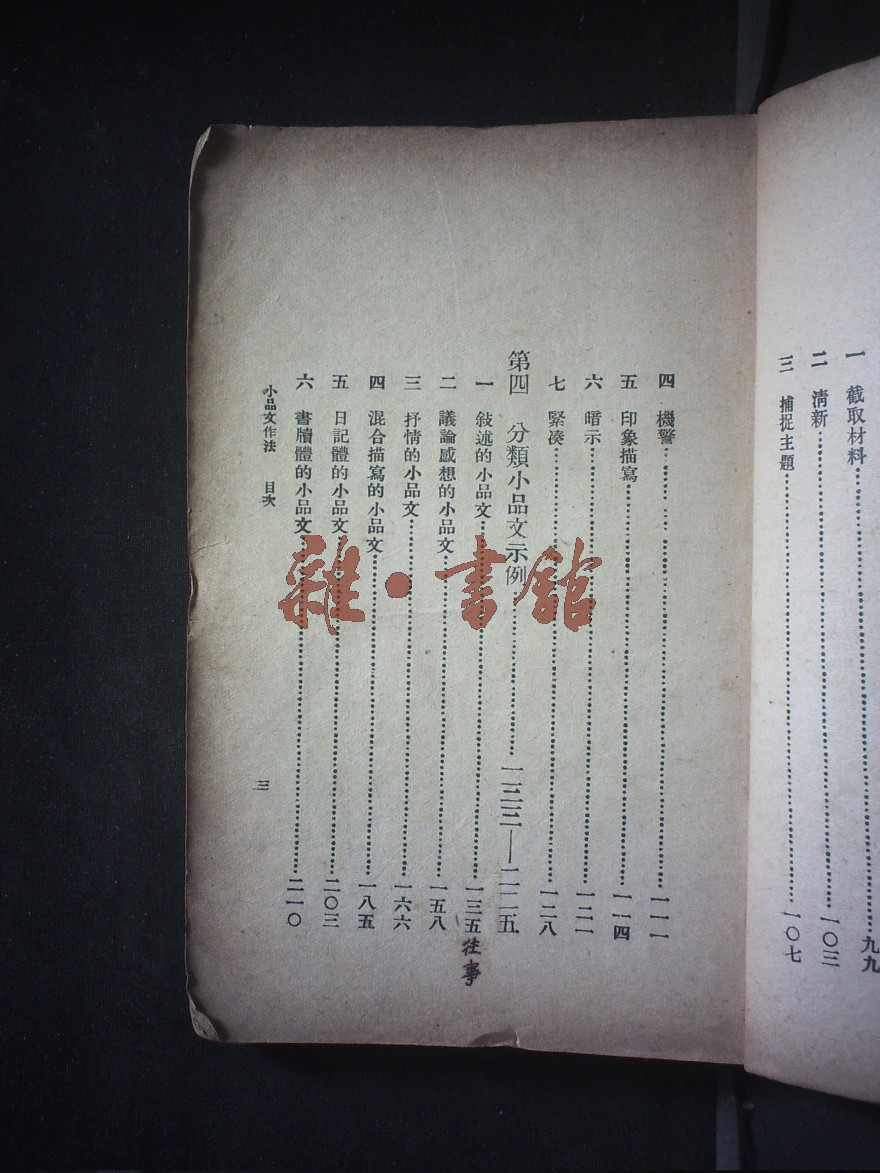 一 截取材料……九九
二 清新……一〇三
三 捕捉主題……一〇七
四 機警……一一一
五 印象描寫……一一四
六 暗示……一二一
七 緊湊……一二八
第四 分類小品文示例……一三三——二一五
一 敍述的小品文……一三五 往事
二 議論感想的小品文……一五八
三 抒情的小品文……一六六
四 混合描寫的小品文……一八五
五 日記體的小品文……二〇三
六 書牘體的小品文……二一〇
小品文作法 目次 三
雜·書館